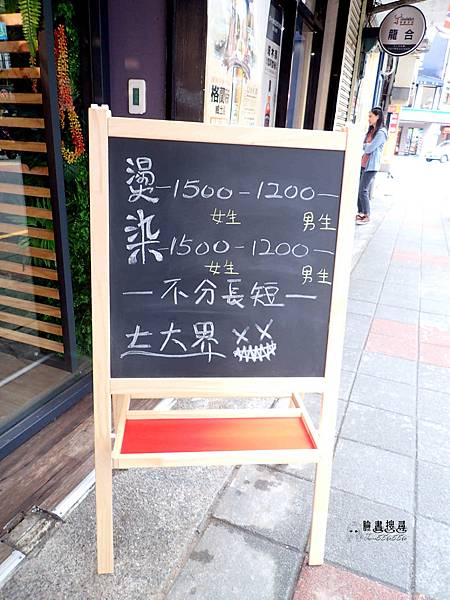 燙-1500-1200-
女生 男生
染-1500-1200-
女生 男生
-不分長短-
土大界 xx
龍合
臉書搜尋